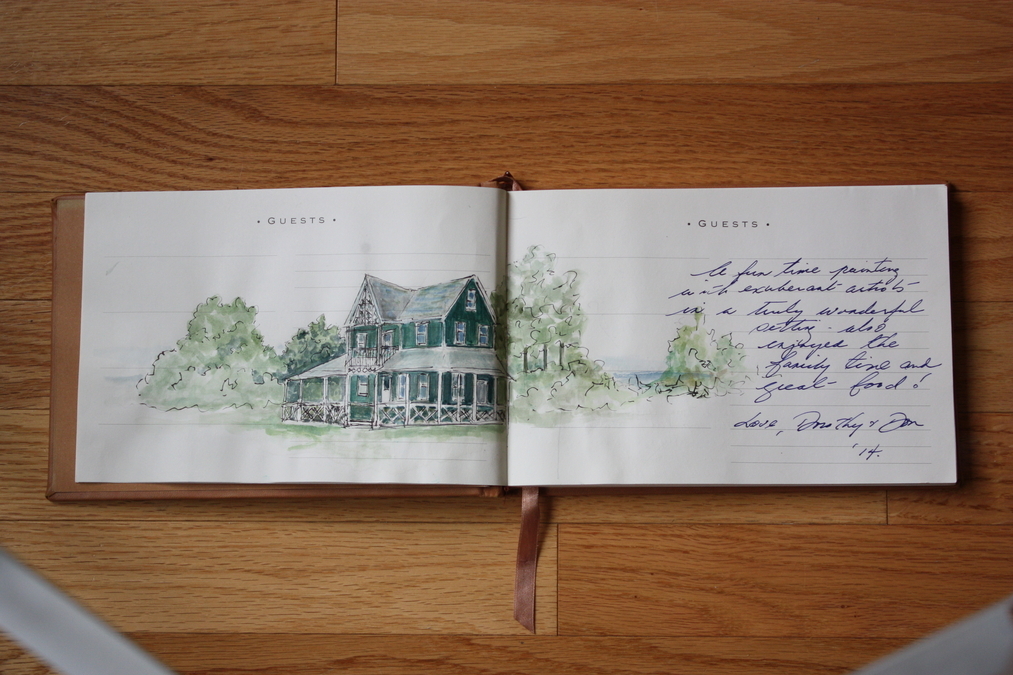 • GUESTS •
• GUESTS •
A fun time painting
with exuberant artists
in a truly wonderful
setting - also
enjoyed the
family time and
great food!
Love, Dorothy & Don
'14.